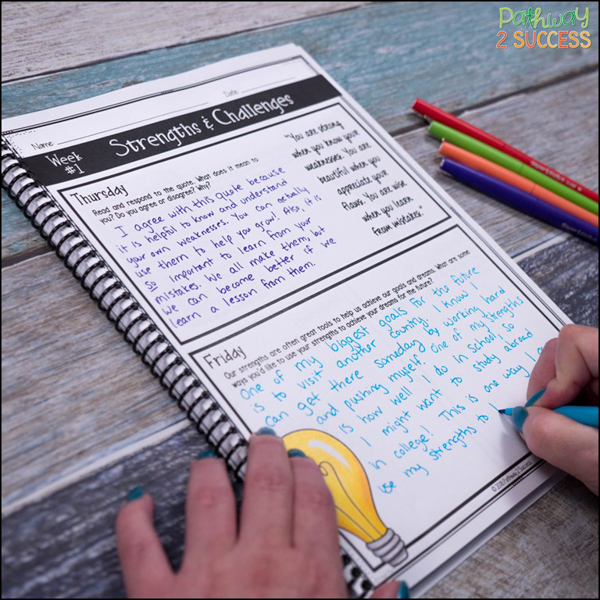 Pathway
2 SUCCESS
Name
Date
Week
#1
Strengths & Challenges
Thursday
Read and respond to the quote. What does it mean to
you? Do you agree or disagree? Why?
I agree with this quote because
it is helpful to know and understand
your own weaknesses. You can actually
use them to help you grow! Also, it is
so important to learn from your
mistakes. We all make them, but
we can become better if we
learn a lesson from them.
"You are strong
when you know your
weaknesses. You are
beautiful when you
appreciate your
flaws. You are wise
when you learn
from mistakes."
Friday
Our strengths are often great tools to help us achieve our goals and dreams. What are some
ways you'd like to use your strengths to achieve your dreams for the future?
One of my biggest goals for the future
is to visit another country. I know I
can get there someday by working hard
and pushing myself. One of my strengths
is how well I do in school, so
I might want to study abroad
in college! This is one way I can
use my strengths to